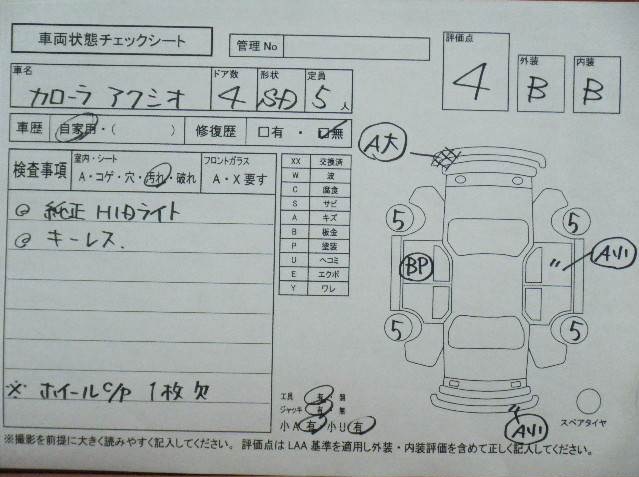 車両状態チェックシート
管理No
評価点
4
外装
B
内装
B
車名
カローラ アクシオ
ドア数
4
形状
SD
定員
5人
車歴 自家用・( ) 修復歴 □有・□無
検査事項
室内・シート
A・コゲ・穴・汚れ・破れ
フロントガラス
A・X要す
◎ 純正HIDライト
◎ キーレス.
※ ホイールC/P 1枚欠
XX 交換済
W 波
C 腐食
S サビ
A キズ
B 板金
P 塗装
U ヘコミ
E エクボ
Y ワレ
A大
5
5
BP
A小
5
5
A小
スペアタイヤ
工具 有・無
ジャッキ 有・無
小A 有 小U 有
※撮影を前提に大きく読みやすく記入してください。評価点はLAA基準を適用し外装・内装評価を含めて正しく記入してください。